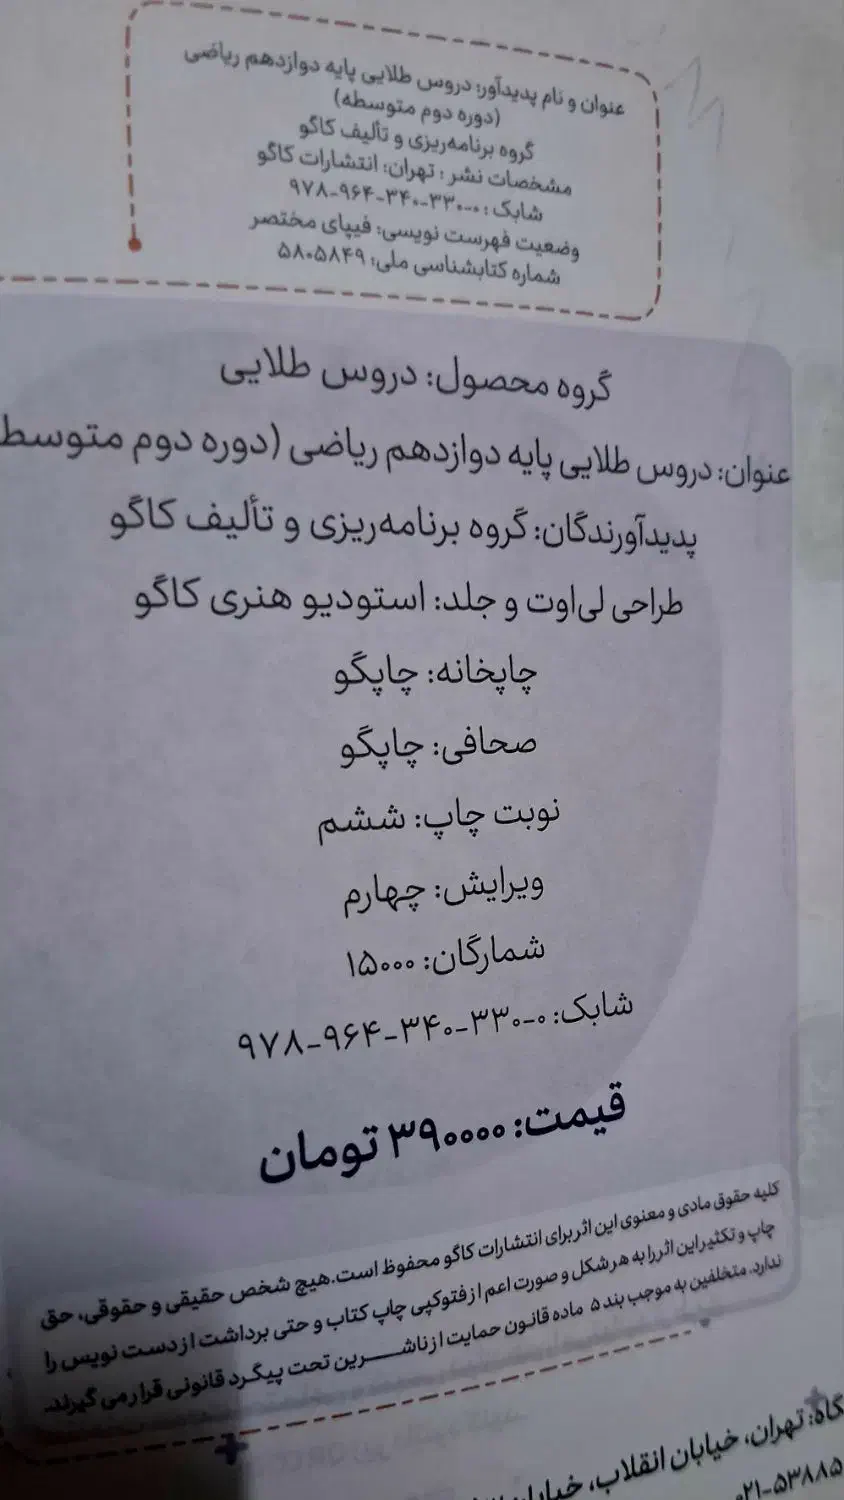 عنوان و نام پدیدآور: دروس طلایی پایه دوازدهم ریاضی
(دوره دوم متوسطه)
گروه برنامه‌ریزی و تألیف کاگو
مشخصات نشر : تهران: انتشارات کاگو
شابک : ۰-۳۳۰-۳۴۰-۹۶۴-۹۷۸
وضعیت فهرست نویسی: فیپای مختصر
شماره کتابشناسی ملی: ۵۸۰۵۸۴۹
گروه محصول: دروس طلایی
عنوان: دروس طلایی پایه دوازدهم ریاضی (دوره دوم متوسط
پدیدآورندگان: گروه برنامه‌ریزی و تألیف کاگو
طراحی لی‌اوت و جلد: استودیو هنری کاگو
چاپخانه: چاپگو
صحافی: چاپگو
نوبت چاپ: ششم
ویرایش: چهارم
شمارگان: ۱۵۰۰۰
شابک: ۰-۳۳۰-۳۴۰-۹۶۴-۹۷۸
قیمت: ۳۹۰۰۰۰ تومان
کلیه حقوق مادی و معنوی این اثر برای انتشارات کاگو محفوظ است. هیچ شخص حقیقی و حقوقی، حق
چاپ و تکثیر این اثر را به هر شکل و صورت اعم از فتوکپی چاپ کتاب و حتی برداشت از دست نویس را
ندارد. متخلفین به موجب بند ۵ ماده قانون حمایت از ناشـرین تحت پیگرد قانونی قرار می گیرند.
گاه: تهران، خیابان انقلاب،
۰۲۱-۵۳۸۸۵